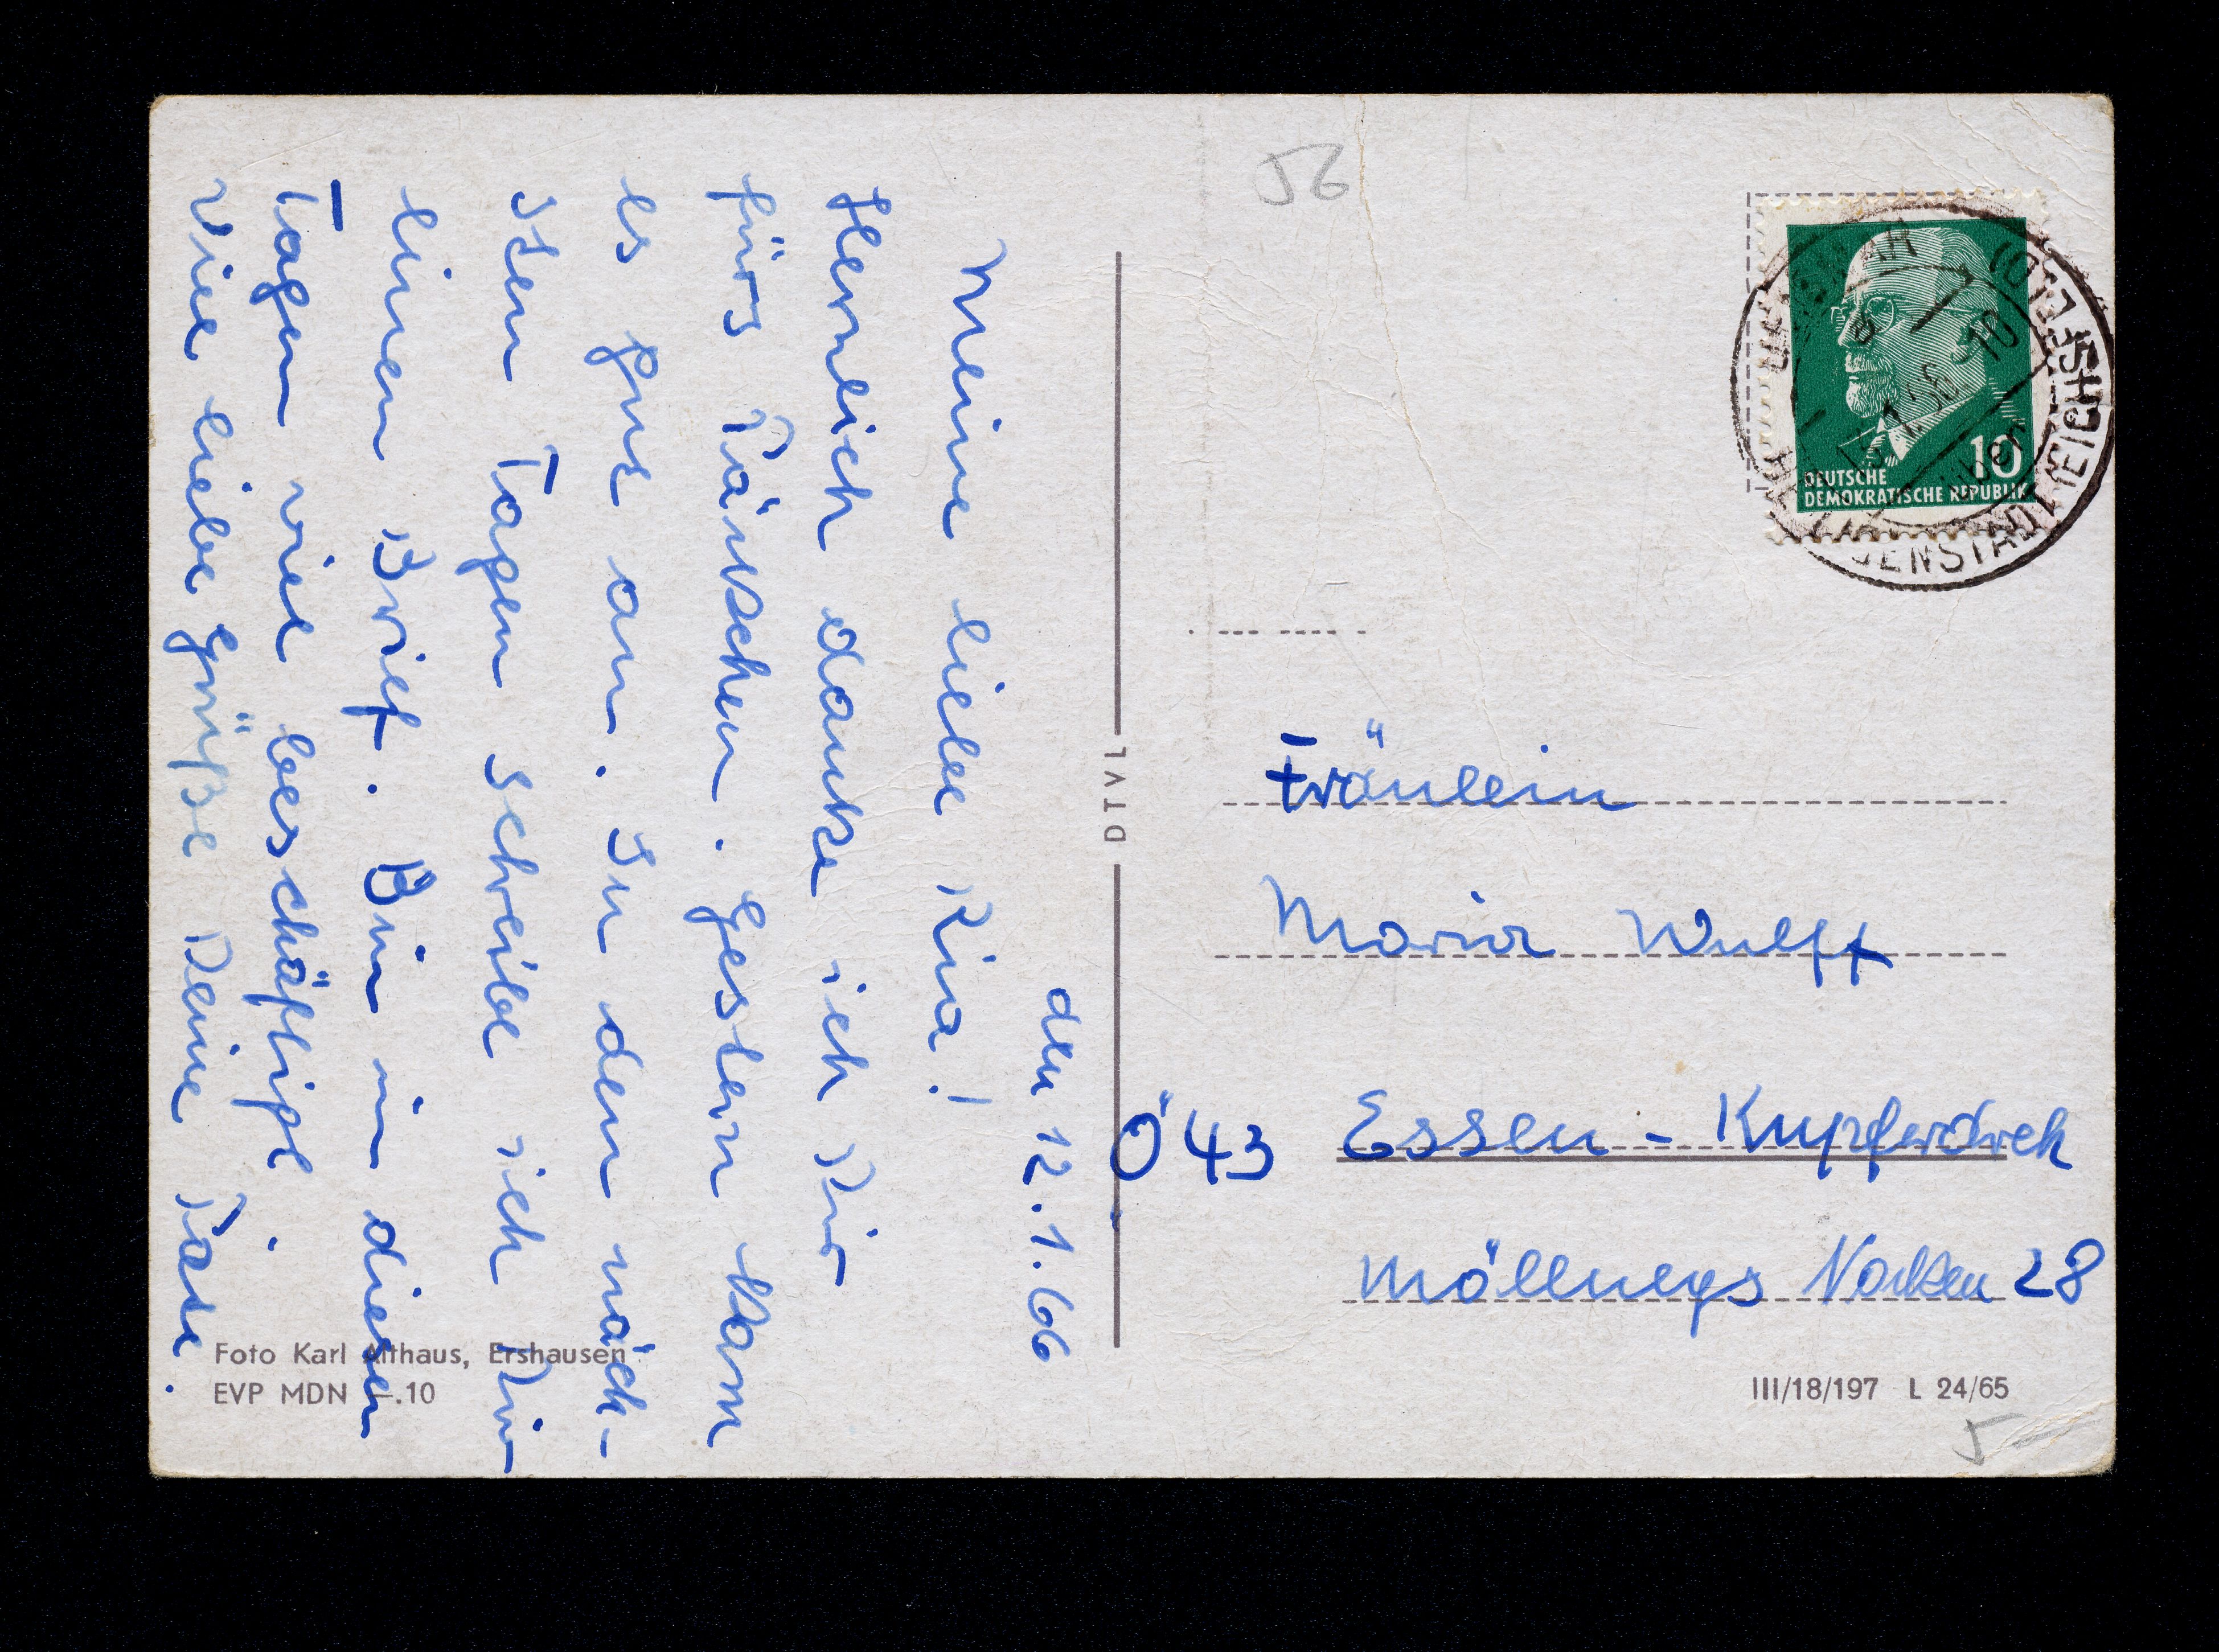 den 12.1.66
Meine liebe Ria!
Herzlich danke ich Dir
fürs Päckchen. Gestern kam
es gut an. In den näch-
sten Tagen schreibe ich Dir
einen Brief. Bin in diesen
Tagen viel beschäftigt.
Viele liebe Grüße Deine
Foto Karl Althaus, Ershausen
EVP MDN –.10
DTVL
56
10
DEUTSCHE
DEMOKRATISCHE REPUBLIK
Fräulein
Maria Wulff
Ö 43 Essen - Kupferdreh
Möllneys Nocken 28
III/18/197 L 24/65
5